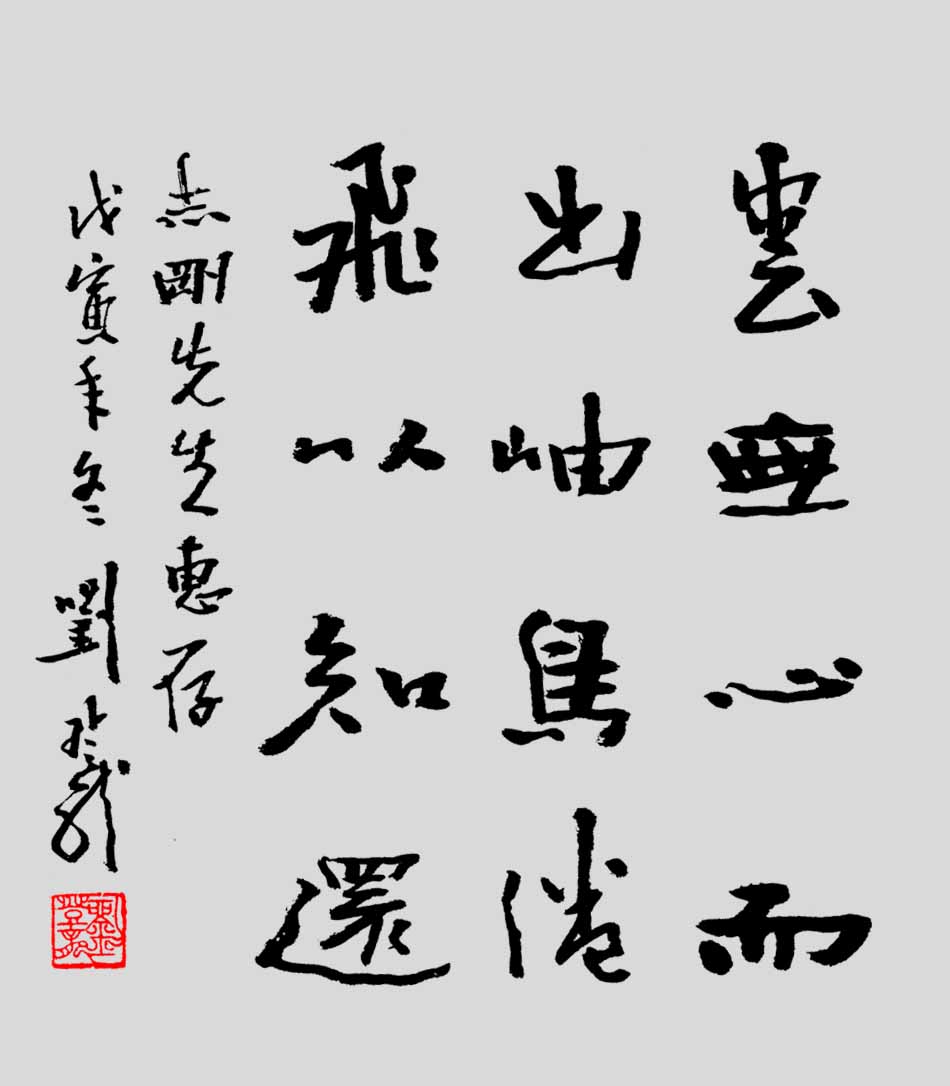 雲無心而
出岫鳥倦
飛以知還
志剛先生惠存
戊寅年冬劉